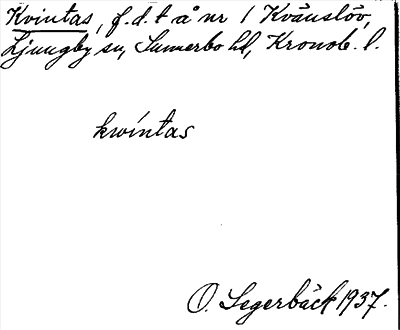 Kvintas, f.d.t å nr 1 Kvänslöv,
Ljungby sn, Sunnerbo hd, Kronob. l.
kwíntas
O. Segerbäck 1937.